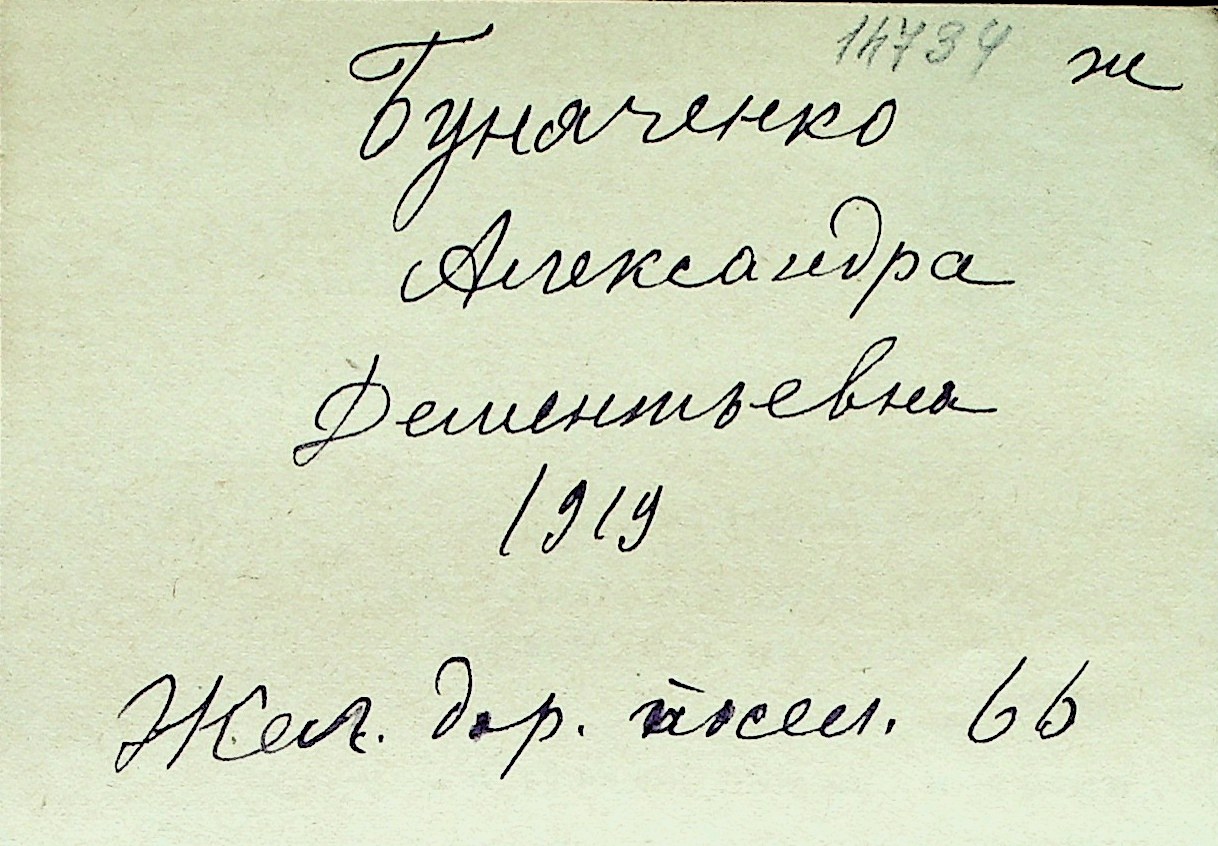 14734 ж
Буначенко
Александра
Дементьевна
1919
Жел. дор. посел. 66